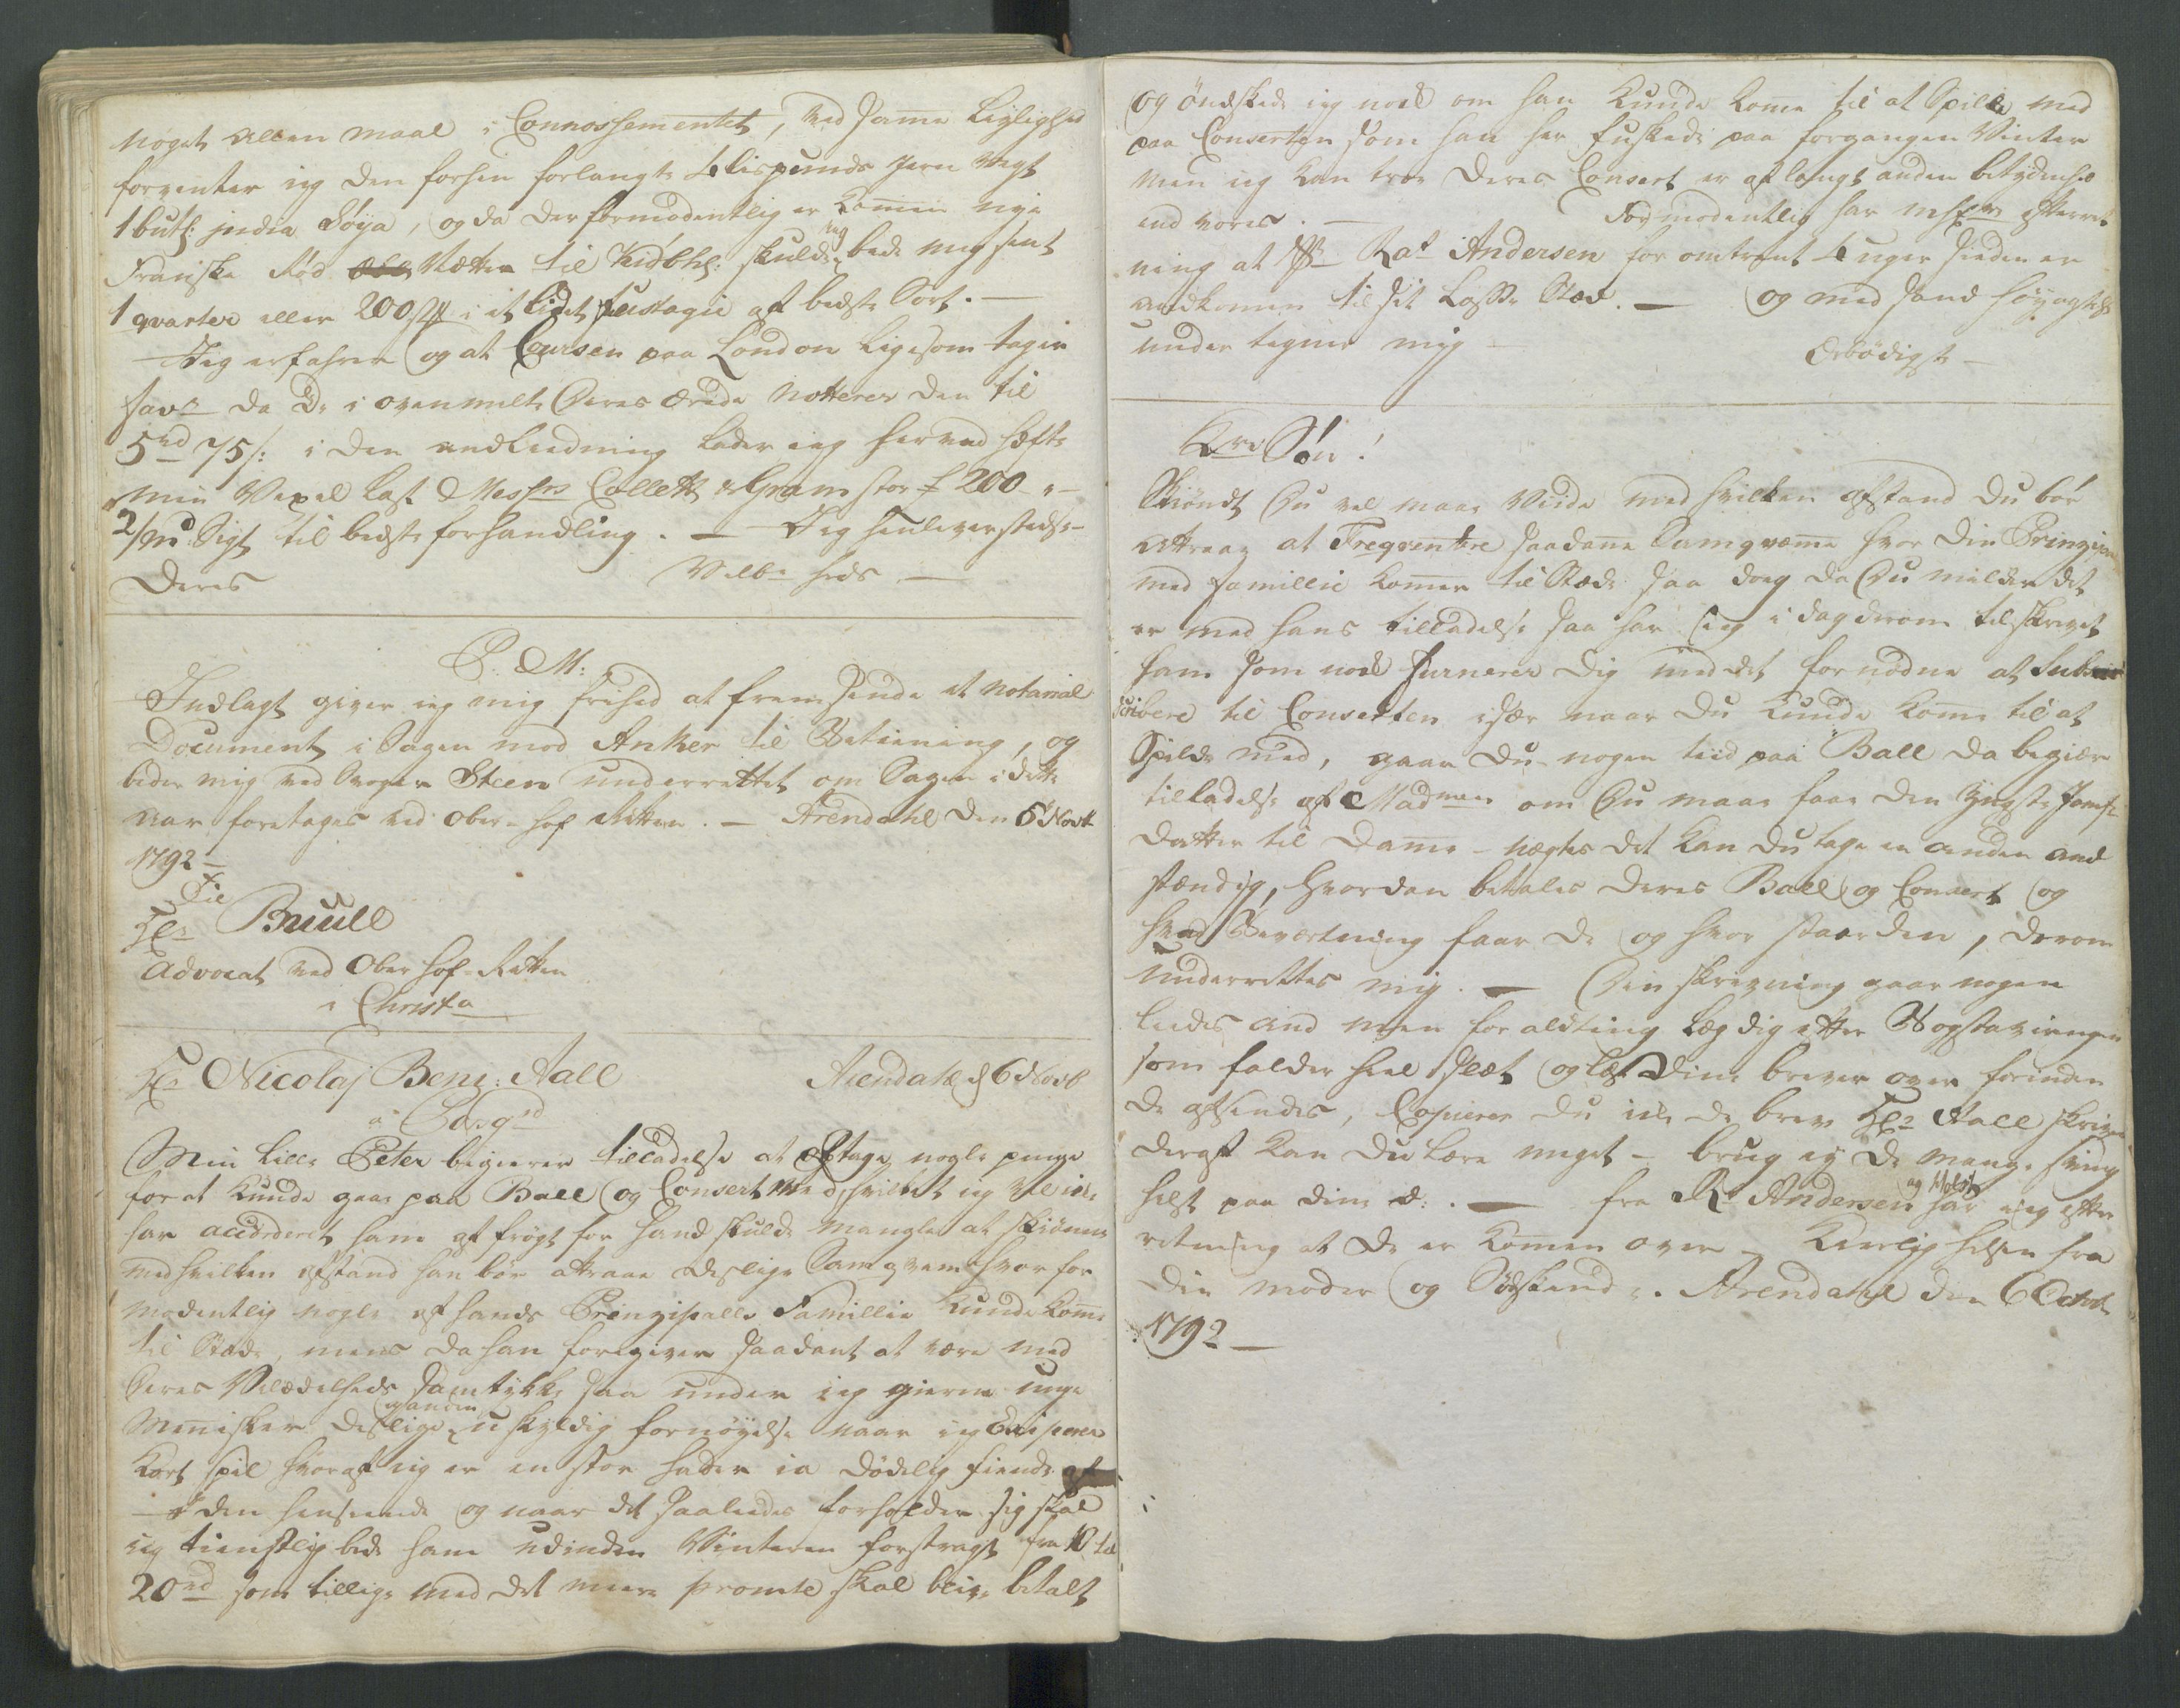 noget Allen maal i Connossementet, ved samme Leylighed
forventer ieg den forhen forlangte 4 lispunds Jern Vægt
1 but: india Soya, og da der formodentlig er kommen nye
Franske Rød Vatten til Kiøbh: skulde ieg bede mig sent
1 qvarter eller 200 ℔ i et lidet fustagie af beste Sort. —
Jeg erfahrer og at Coursen paa London ligesom tager
fav: da De i ovenmelte Deres ærede notterer den til
5 rd 75 s: i den andledning lader ieg herved hefte
min Vexel Last Messrs Collett & Gram stor £ 200 „—
2/md Sigt til beste forhandling. — Jeg henleverstedse
Deres Velb: heds —
P. M:
Indlagt giver ieg mig frihed at fremsende et notarial
Document i Sagen mod Anker til Betiening, og
beder mig ved Svoger Steen underrettet om Sagen i dette
aar foretages ved Ober-hof Retten. — Arendahl den 6 Novbr
1792 —
Til
Hr Buull
Advocat ved Ober hof-Retten
i Christa
Hr Nicolaj Benj: Aall Arendahl d 6 Novb
a Porsgrd
Min lille Peter begierer tilladelse at optage nogle penge
for at kunde gaae paa Ball og Consert med, hvilket ieg ei
har accorderet ham af frögt for hand skulde mangle at skiönne
med hvilken afstand han bör attraae deslige Samqvem hvor for
modentlig nogle af hands Prinzipalls Famillie kunde komme
til Stæde, mens da han foregiver saadant at være med
Deres Velædelheds Samtykke saa under ieg gierne unge
Mennisker deslige og anden uskyldig fornöyelse naar ieg Exiperer
Kort spil hvoraf ieg er en stor hader ia dödelig fiende af
— i den henseende og naar det saaledes forholder sig skal
ieg tienstlig bede ham udi den Vinteren forstragt fra 10 til
20 rd som tillige med det mere promte skal blive betalt
og öndskede ieg nok om han kunde komme til at Spille med
paa Conserten som han her fuskede paa forgangen Vinter
men ieg kan troe Deres Consert er af langt anden betydenhed
end vores. — Formodentlig har efterret
ning at Andersen for omtrent 4 uger sieden er
ankommen til sit Losse Sted. — og med sand höyagtelse
under tegner mig — Ærbödigst —
Kre Sön!
Skiöndt Du vel maae Viide med hvilken afstand du bör
attraae at Freqventere saadanne Samqvæmme hvor din Prinzipal
med famillie kommer til Stæde saa dog da Du melder det
er med hans tilladelse saa har ieg i dag derom tilskrevet
ham som nok furnerer dig med det fornødne at Sub
scribere til Conserten især naar du kunde komme til at
Spilde med, gaar du nogen tiid paa Ball da begiær
tilladelse af Madmen om Du maae faae den yngste Jomfr
datter til Damme — nægtes det kan du tage en anden and
stændig, hvordan betales deres Ball og Consert og
hvad Beværtning faar De og hvor staar den, derom
underrettes mig. — Din skrivning gaar nogen
ledes and men for alting leg dig efter Bogstaveringen
som falder heel slet og læs dine brever over forinden
de afsendes, Copierer du ikke de brev Hr Aall skriver
deraf kan du lære meget — brug ey de mange sving
helst paa dine d: . — fra Rr Andersen og Holst har ieg efter
retning at de er kommen over — Kierlig hilsen fra
din moder og Södskende. Arendahl den 6 Octob
1792 —